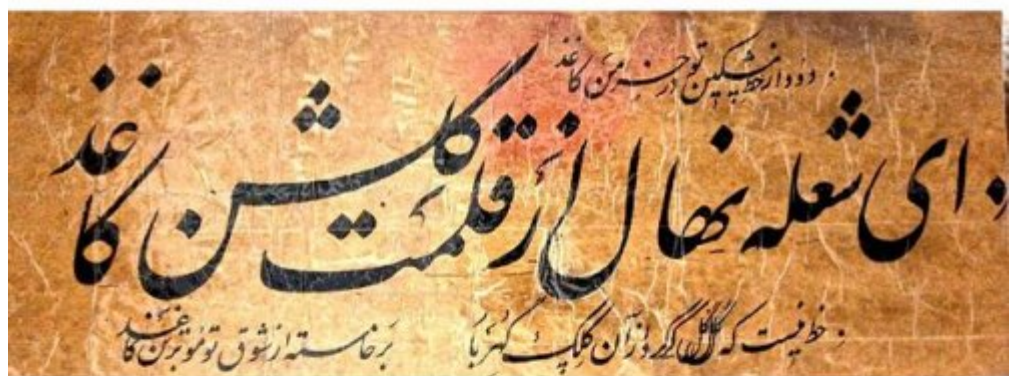 دود از خط مشکین تو در خرمن کاغذ
ای شعله نهال از قلمت گلشن کاغذ
خط نیست که گل کرد از آن کلک گهربار برخاسته از شوق تو مو بر تن کاغذ